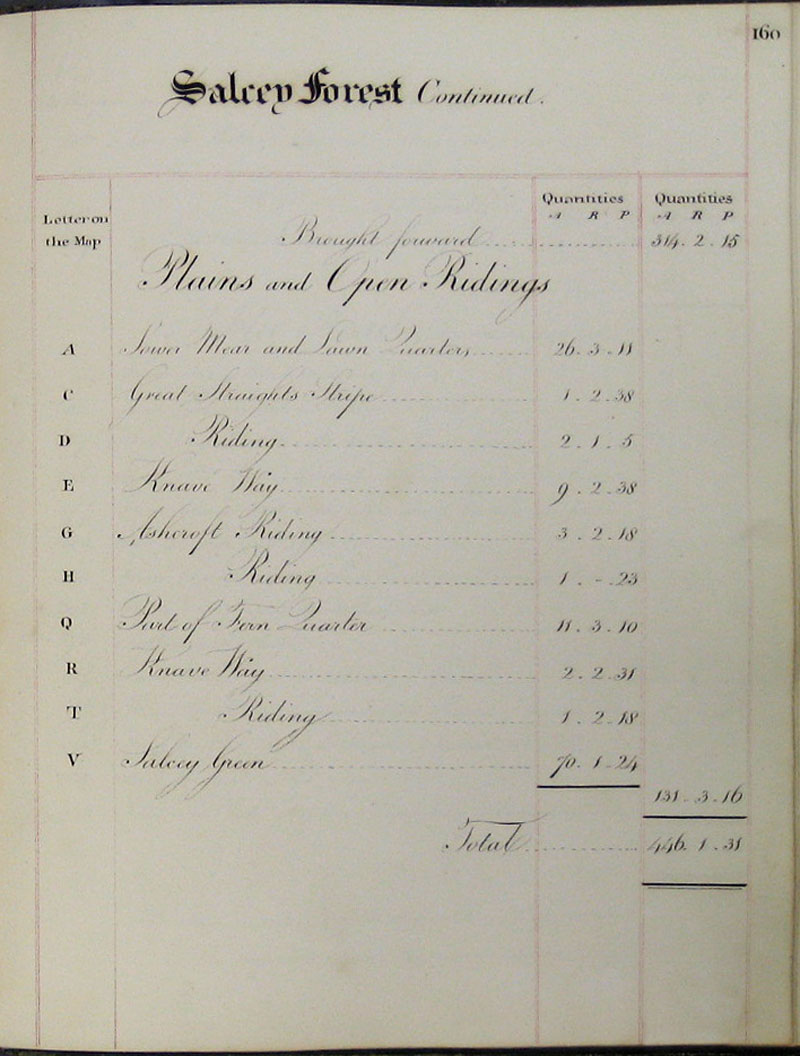 160
Salcey Forest Continued.
Letter on the Map
Quantities A R P
Quantities A R P
Brought forward 314. 2. 15
Plains and Open Ridings
A Lower Mear and Lawn Quarters 26. 3. 11
C Great Straights Stripe 1. 2. 38
D Riding 2. 1. 5
E Knave Way 9. 2. 38
G Ashcroft Riding 3. 2. 18
H Riding 1. - . 23
Q Part of Fern Quarter 11. 3. 10
R Knave Way 2. 2. 31
T Riding 1. 2. 18
V Salcey Green 70. 1. 24
131. 3. 16
Total 446. 1. 31